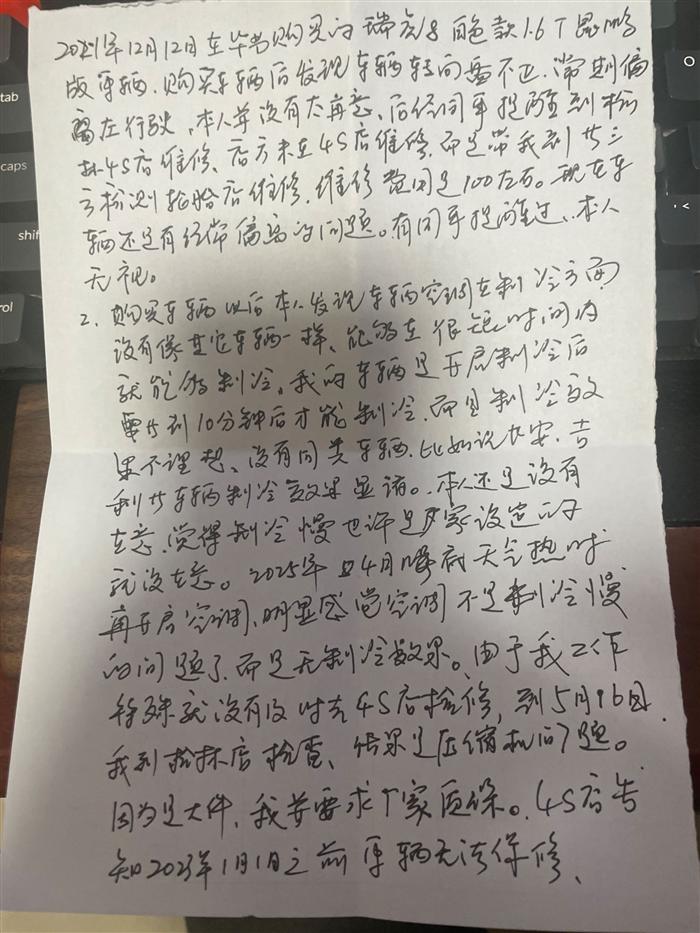 2021年12月12日在毕节购买的瑞虎8白色款1.6T昆鹏
版车辆.购买车辆后发现车辆转向盘不正.常期偏
离左行驶,本人并没有太再意、后经同事提醒到检
4S店维修、店方未在4S店维修、而是带我到第三
方检测轮胎店维修,维修费同是100左右。现在车
辆还是有经常偏离的问题。有同事提醒过、本人
无视。
2、购买车辆以后本人发现车辆空调在制冷方面
没有像其它车辆一样、能够在很短时间内
就能够制冷,我的车辆是开启制冷后
要等到10分钟后才能制冷.而且制冷效
果不理想、没有同类车辆.比如说长安.吉
利等车辆制冷效果显诸。本人还是没有
在意.觉得制冷慢也许是厂家设定的
就没在意。2025年4月天气热时
再开启空调、明显感觉空调不是制冷慢
的问题了.而是无制冷效果。由于我工作
特殊就没有及时去4S店检修,到5月16日.
我到店检查、结果是压缩机问题。
因为是大件,我并要求厂家质保。4S店告
知2023年1月1日之前车辆无法保修、
tab
caps
shift